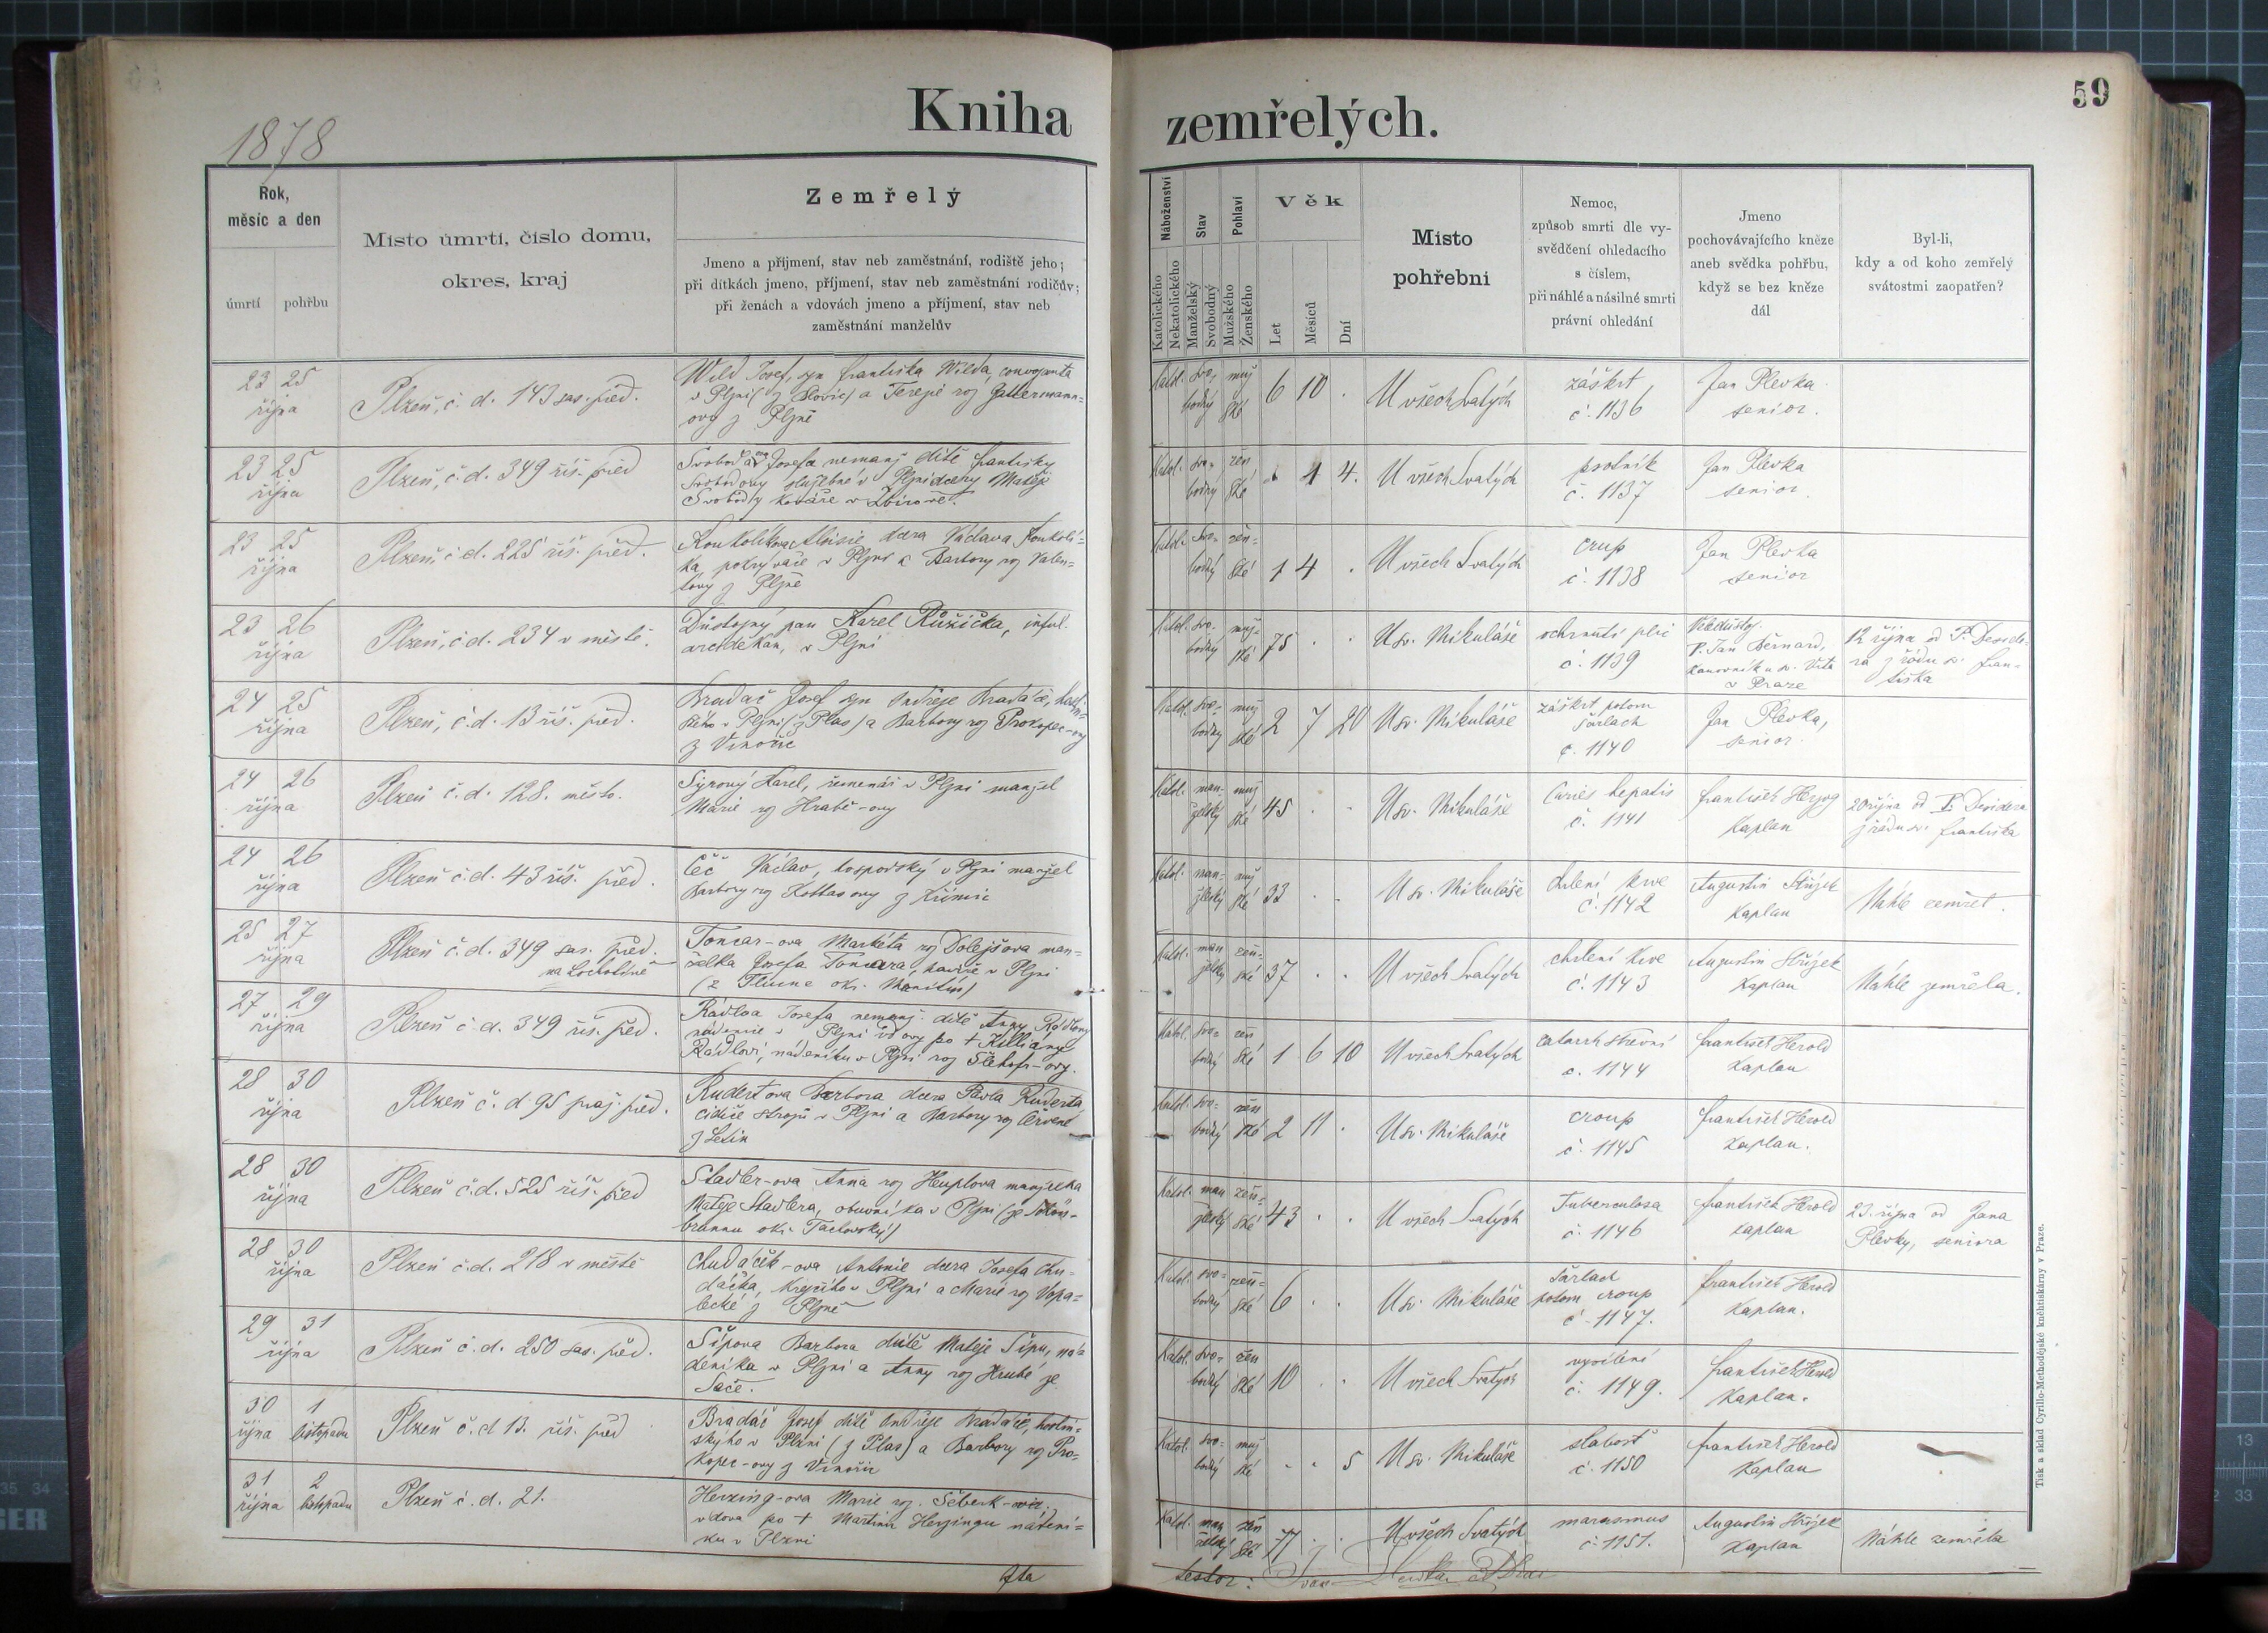 59
Kniha zemřelých.
1878
Rok,
měsíc a den
úmrtí pohřbu
Místo úmrtí, číslo domu,
okres, kraj
Zemřelý
Jmeno a příjmení, stav neb zaměstnání, rodiště jeho;
při dítkách jmeno, příjmení, stav neb zaměstnání rodičův;
při ženách a vdovách jmeno a příjmení, stav neb
zaměstnání manželův
Náboženství
Katolického
Nekatolického
Stav
Manželský
Svobodný
Pohlaví
Mužského
Ženského
Věk
Let
Měsíců
Dní
Místo
pohřební
Nemoc,
způsob smrti dle vy-
svědčení ohledacího
s číslem,
při náhlé a násilné smrti
právní ohledání
Jmeno
pochovávajícího kněze
aneb svědka pohřbu,
když se bez kněze
dál
Byl-li,
kdy a od koho zemřelý
svátostmi zaopatřen?
23 25
října
Plzeň, č. d. 143 sas. před.
Wild Josef, syn Františka Wilda,
v Plzni a Terezie roz
z Plzně
Katol. svo- muž
bodný ské
6 10 .
U všech Svatých
záškrt
č. 1136
Jan Plevka
senior.
23 25
října
Plzeň, č. d. 349 říš. před
Josefa nemanž dítě Františky
Svobodovy služebné v Plzni dcery Matěje
Svobody kováře v Zbirově.
Katol. svo- žen
bodný ské
4 4.
U všech Svatých
psotník
č. 1137
Jan Plevka
senior.
23 25
října
Plzeň č. d. 225 říš. před.
Koukolíkova Aloisie dcera Václava Koukolí-
ka, pokrývače v Plzni a Barbory roz Valen-
tovy z Plzně
Katol. Svo- žen-
bodný ské
1 4 .
U všech Svatých
crup
č. 1138
Jan Plevka
senior
23 26
října
Plzeň, č. d. 234 v městě.
Důstojný pan Karel Růžička, inful.
arciděkan, v Plzni
Katol. svo- muž-
bodný ské
75 . .
U sv. Mikuláše
ochrnutí plic
č. 1139
P. Jan Bernard,
kanovník u sv. Víta
v Praze
12 října od P. Deside-
ra z řádu sv. Fran-
tiška
24 25
října
Plzeň, č. d. 13 říš. před.
Bradáč Josef syn Ondřeje Bradáče,
v Plzni (z Plas) a Barbory roz Prokopec-ovy
z Vinořic
Katol. svo- muž
bodný ské
2 7 20
U sv. Mikuláše
záškrt potom
šarlach
č. 1140
Jan Plevka,
senior.
24 26
října
Plzeň č. d. 128. město.
Syrový Karel, řemenář v Plzni manžel
Marie roz Hrabě-ovy
Katol. man- muž
želský ské
45 . .
U sv. Mikuláše
Caries hepatis
č. 1141
František Herzog
Kaplan
20 října od P. Desidera
z řádu sv. Františka
24 26
října
Plzeň č. d. 43 říš. před.
Čeč Václav, hospodský v Plzni manžel
Barbory roz z Křimic
Katol. man- muž
želský ské
33 . .
U sv. Mikuláše
chrlení krve
č. 1142
Augustin Střízek
Kaplan
Náhle zemřel.
25 27
října
Plzeň č. d. 349 sas. před.
na Lochotíně
Toncar-ova Markéta roz Dolejšova man-
želka Josefa Toncara, v Plzni
Katol. man žen-
želský ské
37 . .
U všech Svatých
chrlení krve
č. 1143
Augustin Střízek
Kaplan
Náhle zemřela.
27 29
října
Plzeň č. d. 349 říš. před.
Rádlova Josefa nemanž. dítě Anny Rádlovy
v Plzni vdovy po +
Rádlovi, nádeníku v Plzni roz
Katol. svo- žen
bodný ské
1 6 10
U všech Svatých
catarrh střevní
č. 1144
František Herold
Kaplan
28 30
října
Plzeň č. d 95 praž. před.
Rudertova Barbora dcera Pavla Ruderta
cídiče strojů v Plzni a Barbory roz Červené
z Letin
Katol. svo- žen
bodný ské
2 11 .
U sv. Mikuláše
croup
č. 1145
František Herold
Kaplan.
28 30
října
Plzeň č. d. 525 říš. před
Stadler-ova Anna roz Heuplova manželka
Matěje Stadlera, obuvníka v Plzni (ze Schön-
brunnu okr. Tachovský)
Katol. man žen-
želský ské
43 . .
U všech Svatých
Tuberculosa
č. 1146
František Herold
kaplan
23. října od Jana
Plevky, seniora
28 30
října
Plzeň č. d. 218 v městě
Chudáček-ova Antonie dcera Josefa Chu-
dáčka, krejčího v Plzni a Marie roz Vopa-
lecké z Plzně
Katol. svo- žen-
bodný ské
6 . .
U sv. Mikuláše
Šarlach
potom croup
č. 1147.
František Herold
Kaplan.
29 31
října
Plzeň č. d. 250 sas. před.
Šípova Barbora dítě Matěje Šípu, ná-
deníka v Plzni a Anny roz Hrubé ze
Katol. svo- žen
bodný ské
10 . .
U všech Svatých
vysílení
č. 1149.
František Herold
Kaplan.
30 1
října listopadu
Plzeň č. d 13. říš. před
Bradáč Josef dítě Ondřeje Bradáče, hostin-
ského v Plzni (z Plas) a Barbory roz Pro-
kopec-ovy z Vinořic
Katol. svo- muž
bodný ské
. . 5
U sv. Mikuláše
slabosť
č. 1150
František Herold
Kaplan
31 2
října listopadu
Plzeň č. d. 21.
Herzing-ova Marie roz.
vdova po + Martinu Herzingu nádení-
ku v Plzni
Katol. man žen
želský ské
77 . .
U všech Svatých
marasmus
č. 1151.
Augustin Střízek
Kaplan
Náhle zemřela
testor:
Tisk a sklad Cyrillo-Methodějské knihtiskárny v Praze.